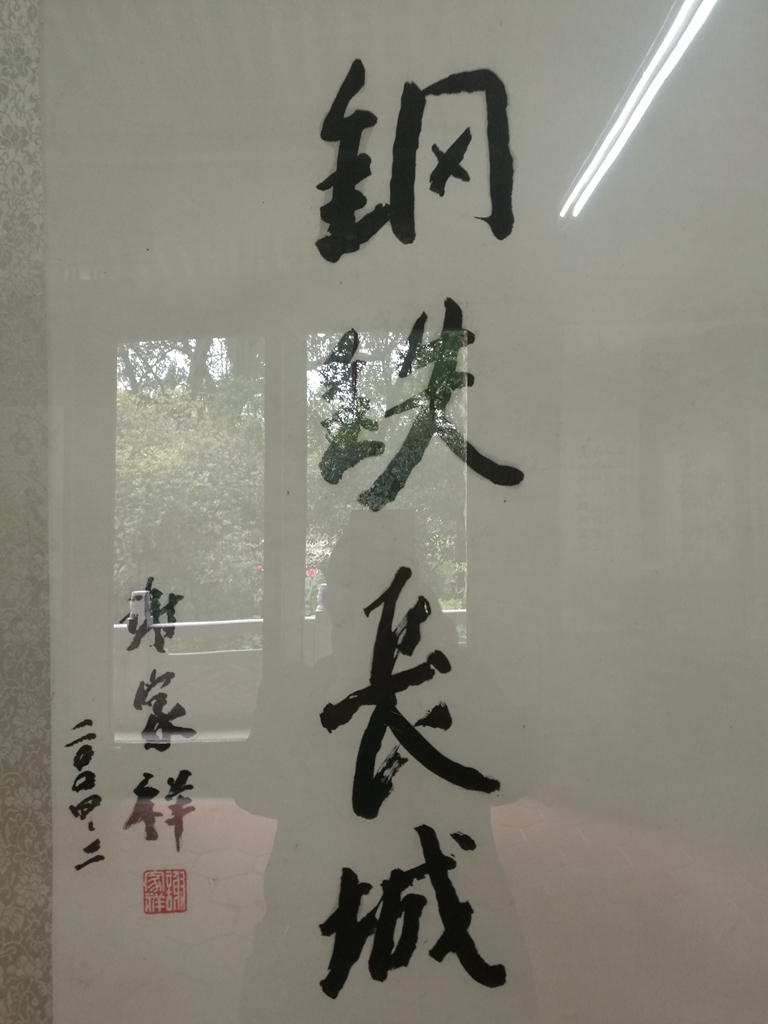 钢铁長城
谢家祥
二〇〇四、二
謝家祥